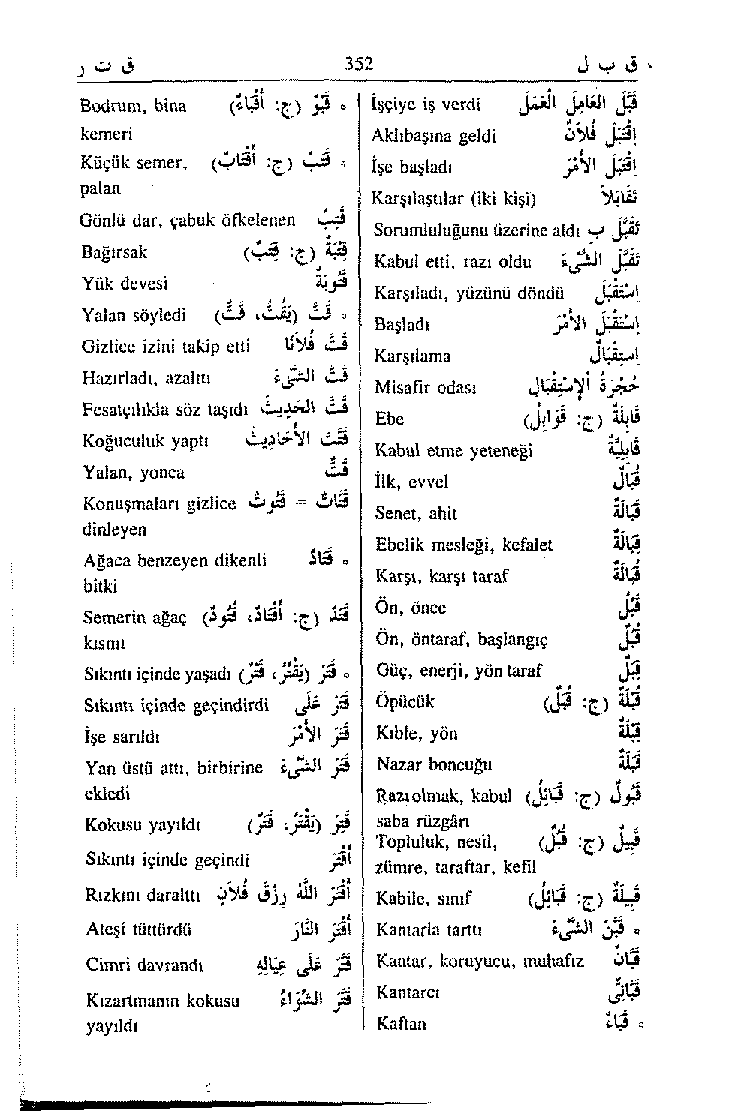 ق ب ل 352 ق ت ر
قَبَّلَ العَامِلَ العَمَلَ İşçiye iş verdi
اِقْتَبَلَ فُلَانٌ Aklıbaşına geldi
اِقْتَبَلَ الأَمْرَ İşe başladı
تَقَابَلَا Karşılaştılar (iki kişi)
تَقَبَّلَ بِ Sorumluluğunu üzerine aldı
تَقَبَّلَ الشَّيْءَ Kabul etti, razı oldu
اِسْتَقْبَلَ Karşıladı, yüzünü döndü
اِسْتَقْبَلَ الأَمْرَ Başladı
اِسْتِقْبَالٌ Karşılama
حُجْرَةُ الاِسْتِقْبَالِ Misafir odası
قَابِلَةٌ (ج: قَوَابِلُ) Ebe
قَابِلِيَّةٌ Kabul etme yeteneği
قَبَالٌ İlk, evvel
قَبَالَةٌ Senet, ahit
قِبَالَةٌ Ebelik mesleği, kefalet
قُبَالَةٌ Karşı, karşı taraf
قَبْلُ Ön, önce
قُبُلٌ Ön, öntaraf, başlangıç
قِبَلٌ Güç, enerji, yön taraf
قُبْلَةٌ (ج: قُبَلٌ) Öpücük
قِبْلَةٌ Kıble, yön
قَبَلَةٌ Nazar boncuğu
قَبُولٌ (ج: قَبَائِلُ) Razı olmak, kabul
saba rüzgârı
قَبِيلٌ (ج: قُبُلٌ) Topluluk, nesil,
zümre, taraftar, kefil
قَبِيلَةٌ (ج: قَبَائِلُ) Kabile, sınıf
قَبَّنَ الشَّيْءَ Kantarla tarttı
قَبَّانٌ Kantar, koruyucu, muhafız
قَبَّانِيٌّ Kantarcı
قَبَاءٌ Kaftan
قَبْوٌ (ج: أَقْبَاءٌ) Bodrum, bina
kemeri
قَتَبٌ (ج: أَقْتَابٌ) Küçük semer,
palan
قَتِبٌ Gönlü dar, çabuk öfkelenen
قِتْبَةٌ (ج: قِتَبٌ) Bağırsak
قَتُوبَةٌ Yük devesi
قَتَّ (يَقُتُّ، قَتٌّ) Yalan söyledi
قَتَّ فُلَانًا Gizlice izini takip etti
قَتَّ الشَّيْءَ Hazırladı, azalttı
قَتَّ الحَدِيثَ Fesatçılıkla söz taşıdı
قَتَّتَ الأَحَادِيثَ Koğuculuk yaptı
قَتٌّ Yalan, yonca
قَتَّاتٌ = قَتُوتٌ Konuşmaları gizlice
dinleyen
قَتَادٌ Ağaca benzeyen dikenli
bitki
قَتَدٌ (ج: أَقْتَادٌ، قُتُودٌ) Semerin ağaç
kısmı
قَتَرَ (يَقْتُرُ، قَتْرٌ) Sıkıntı içinde yaşadı
قَتَرَ عَلَى Sıkıntı içinde geçindirdi
قَتَرَ الأَمْرَ İşe sarıldı
قَتَرَ الشَّيْءَ Yan üstü attı, birbirine
ekledi
قَتِرَ (يَقْتَرُ، قَتَرٌ) Kokusu yayıldı
أَقْتَرَ Sıkıntı içinde geçindi
أَقْتَرَ اللهُ رِزْقَ فُلَانٍ Rızkını daralttı
أَقْتَرَ النَّارَ Ateşi tüttürdü
قَتَّرَ عَلَى عِيَالِهِ Cimri davrandı
قَتَّرَ الشِّوَاءُ Kızartmanın kokusu
yayıldı